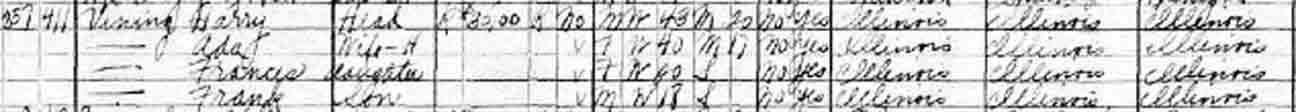 257 411 Vining Harry Head R $30.00 R No M W 43 M 20 no yes Illinois Illinois Illinois
— Ada Wife-H V F W 40 M 17 no yes Illinois Illinois Illinois
— Frances daughter V F W 20 S no yes Illinois Illinois Illinois
— Frank Son V M W 18 S no yes Illinois Illinois Illinois